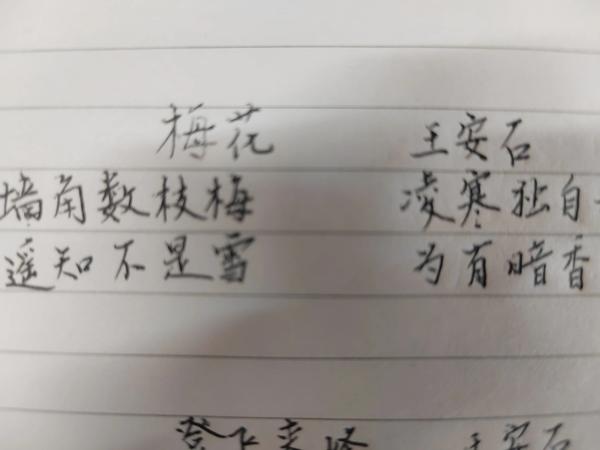 梅花 王安石
墙角数枝梅 凌寒独自
遥知不是雪 为有暗香
登飞来峰 王安石